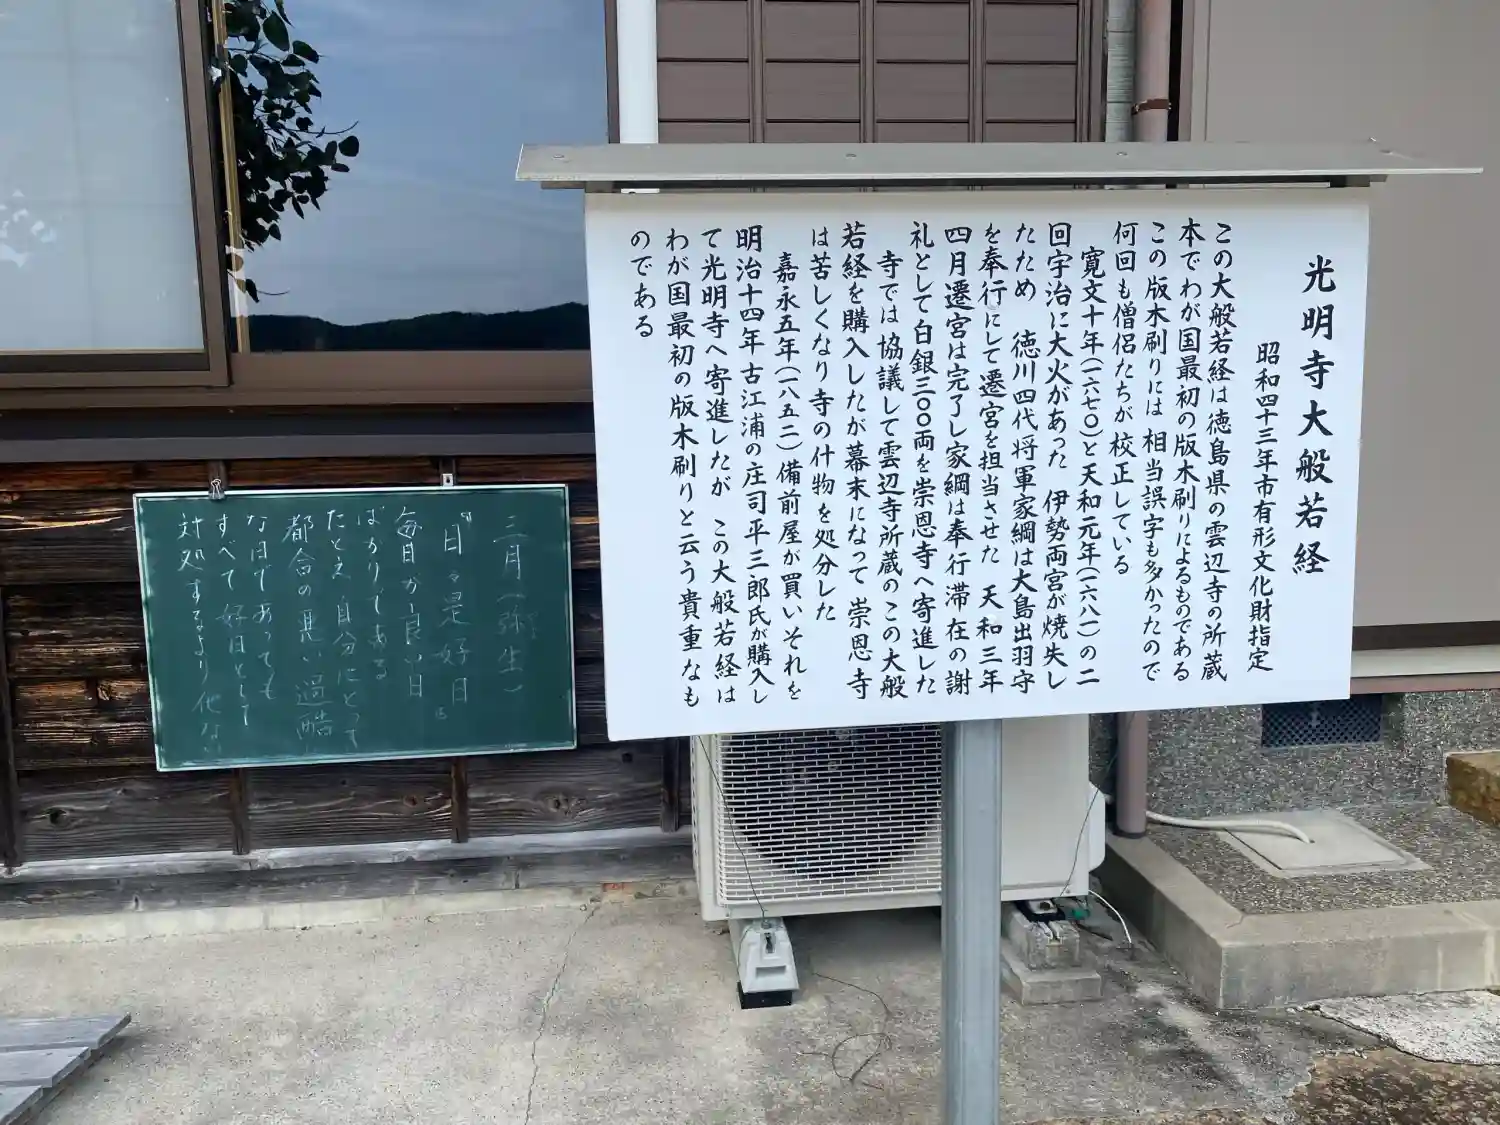 光明寺大般若経
昭和四十三年市有形文化財指定
この大般若経は徳島県の雲辺寺の所蔵
本でわが国最初の版木刷りによるものである
この版木刷りには 相当誤字も多かったので
何回も僧侶たちが 校正している
寛文十年(一六七〇)と天和元年(一六八一)の二
回宇治に大火があった 伊勢両宮が焼失し
たため 徳川四代将軍家綱は大島出羽守
を奉行にして遷宮を担当させた 天和三年
四月遷宮は完了し家綱は奉行滞在の謝
礼として白銀三〇〇両を崇恩寺へ寄進した
寺では協議して雲辺寺所蔵のこの大般
若経を購入したが幕末になって 崇恩寺
は苦しくなり寺の什物を処分した
嘉永五年(一八五二)備前屋が買いそれを
明治十四年古江浦の庄司平三郎氏が購入し
て光明寺へ寄進したが この大般若経は
わが国最初の版木刷りと云う貴重なも
のである
三月(弥生)
『日々是好日』
毎日が良い日
ばかりである
たとえ 自分にとって
都合の悪い過酷
な日であっても
すべて好日として
対処するより他ない